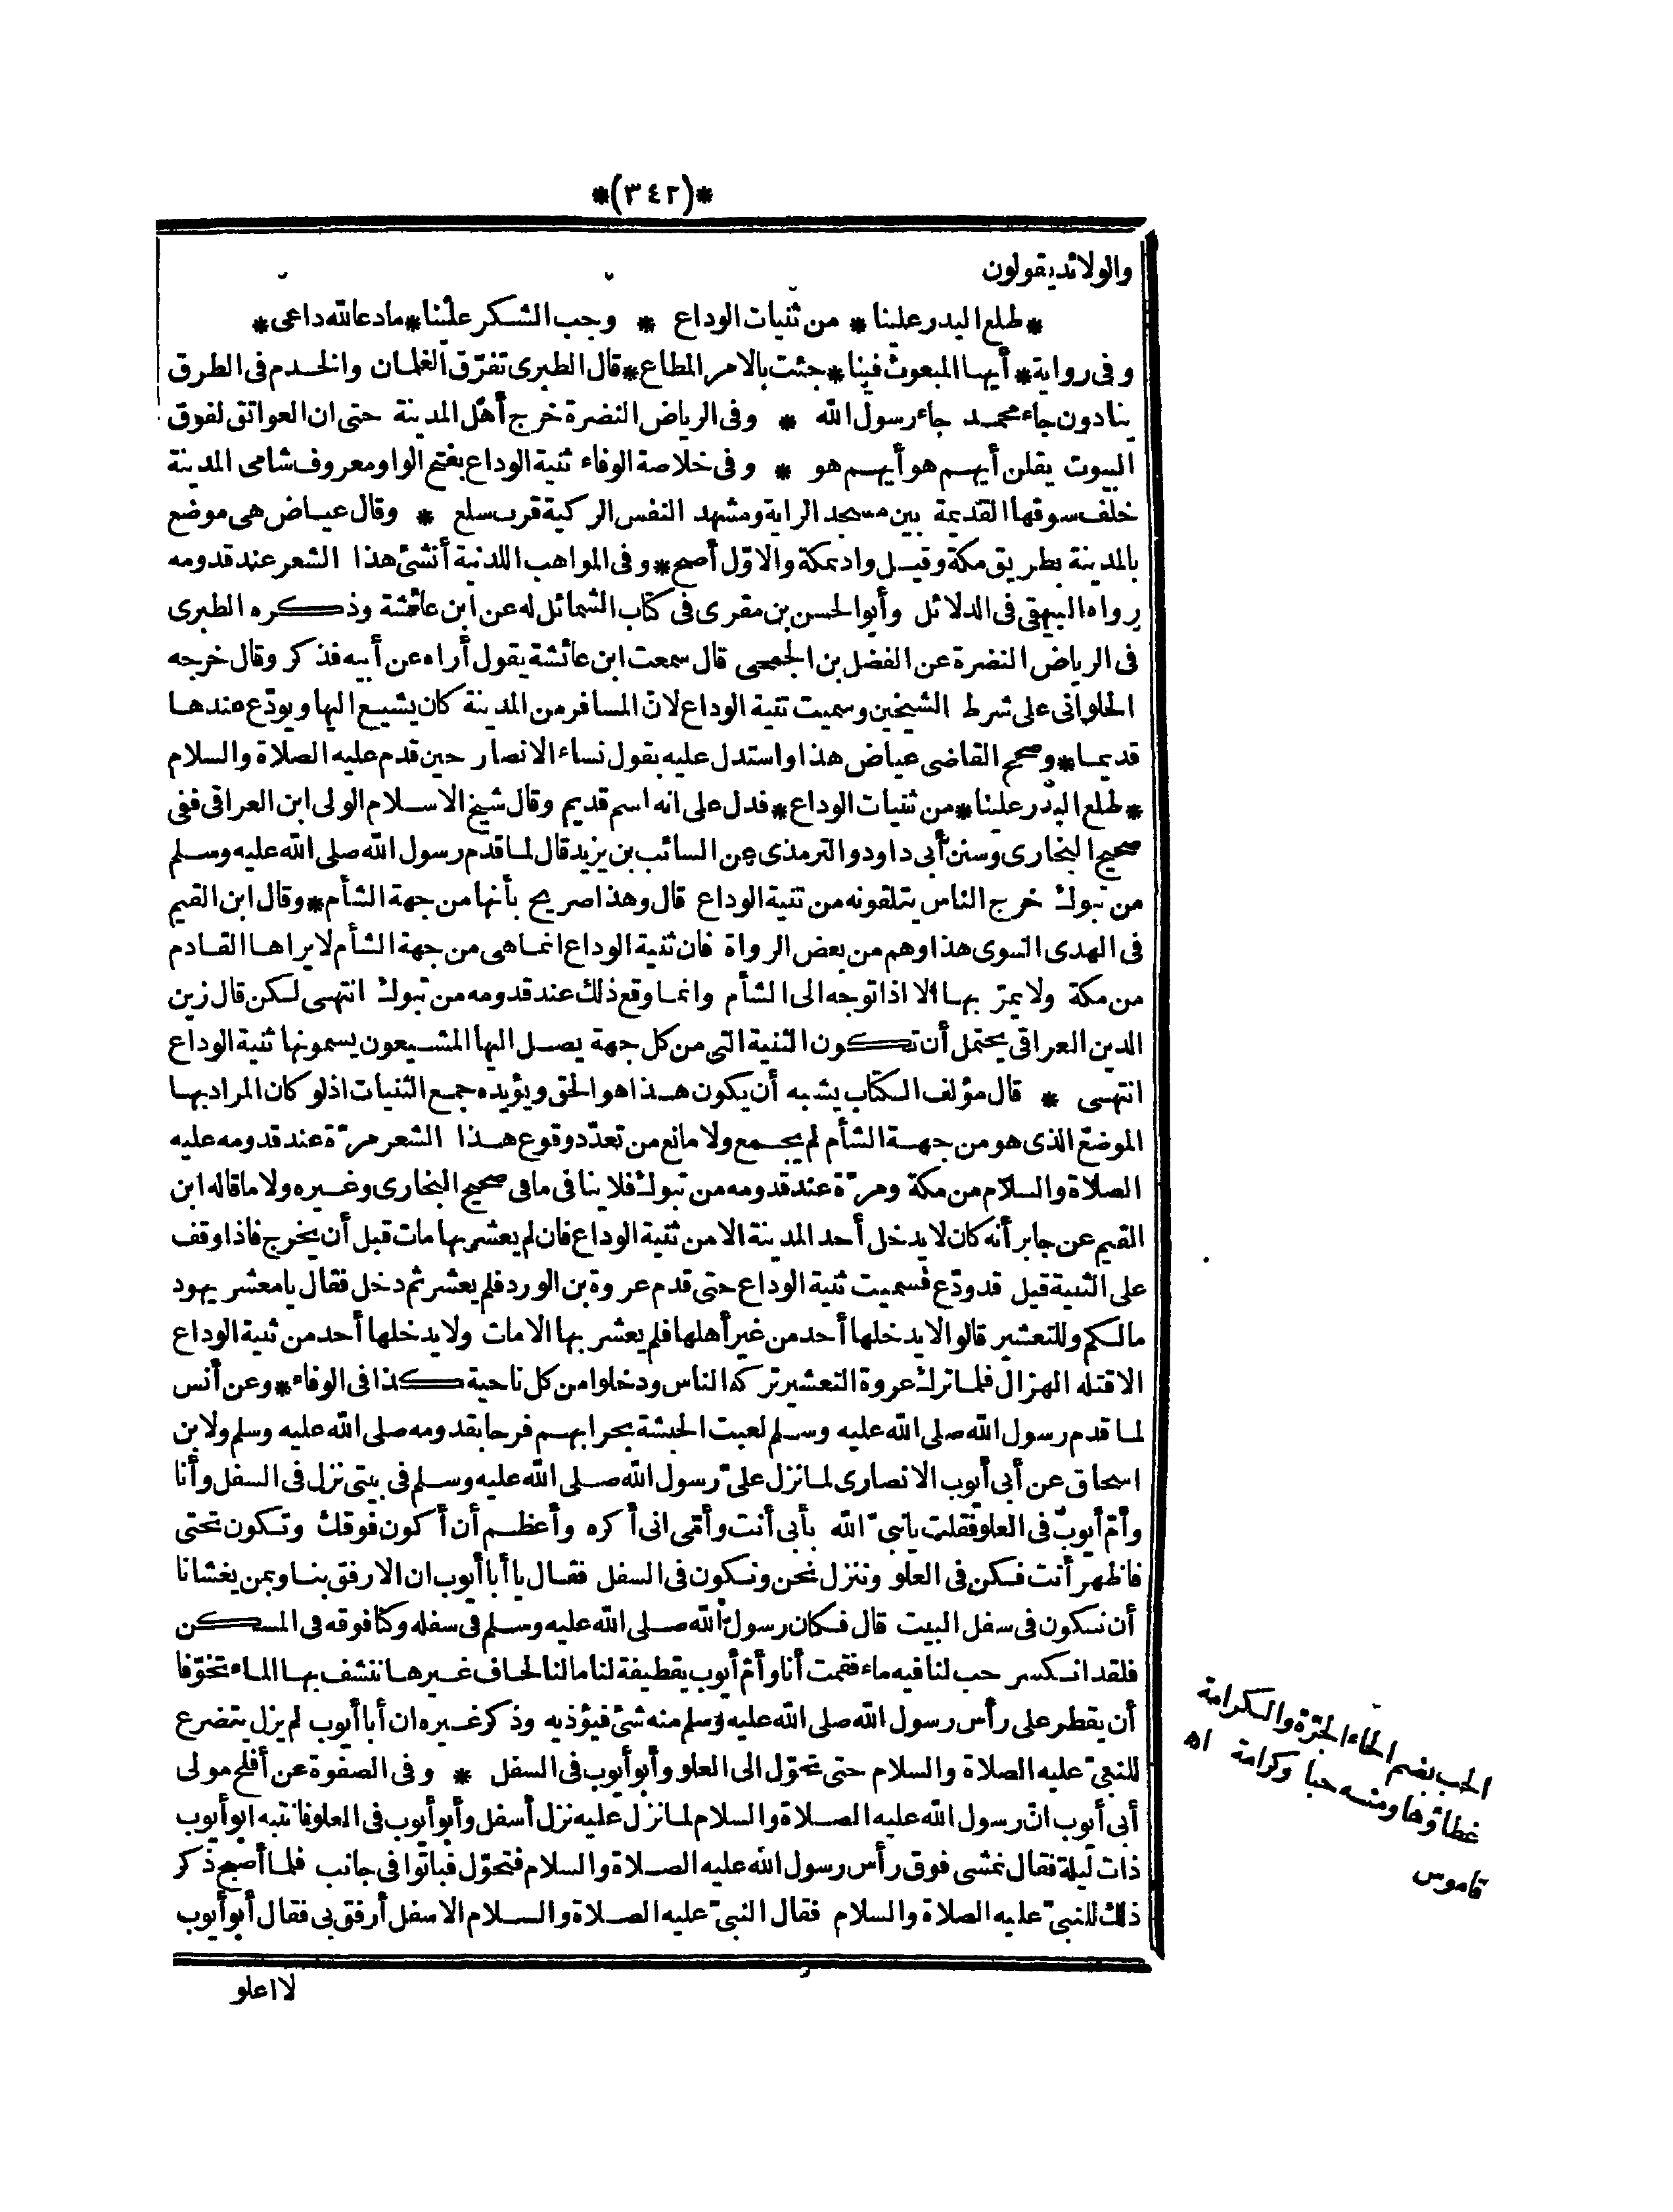 *(٣٤٢)*
والولائد يقولون
*طلع البدر علينا* من ثنيات الوداع * وجب الشكر علينا*ما دعا لله داعى*
وفى رواية*أيها المبعوث فينا*جئت بالامر المطاع*قال الطبرى تفرّق الغلمان والخدم فى الطرق
ينادون جاء محمد جاء رسول الله * وفى الرياض النضرة خرج أهل المدينة حتى ان العواتق لفوق
البيوت يقلن أيهم هو أيهم هو * وفى خلاصة الوفاء ثنية الوداع بفتح الواو معروف شامى المدينة
خلف سوقها القديمة بين مسجد الراية ومشهد النفس الزكية قرب سلع * وقال عياض هى موضع
بالمدينة بطريق مكة وقيل واد بمكة والاوّل أصح*وفى المواهب اللدنية أنشئ هذا الشعر عند قدومه
رواه البيهقى فى الدلائل وأبو الحسن بن مقرى فى كتاب الشمائل له عن ابن عائشة وذكره الطبرى
فى الرياض النضرة عن الفضل بن الجمحى قال سمعت ابن عائشة يقول أراه عن أبيه فذكر وقال خرجه
الحلوانى على شرط الشيخين وسميت ثنية الوداع لانّ المسافر من المدينة كان يشيع اليها ويودّع عندها
قديما*وصحح القاضى عياض هذا واستدل عليه بقول نساء الانصار حين قدم عليه الصلاة والسلام
*طلع البدر علينا*من ثنيات الوداع*فدل على انه اسم قديم وقال شيخ الاسلام الولى ابن العراقى ففى
صحيح البخارى وسنن أبى داود والترمذى عن السائب بن يزيد قال لما قدم رسول الله صلى الله عليه وسلم
من تبوك خرج الناس يتلقونه من ثنية الوداع قال وهذا صريح بأنها من جهة الشأم*وقال ابن القيم
فى الهدى النبوى هذا وهم من بعض الرواة فان ثنية الوداع انما هى من جهة الشأم لا يراها القادم
من مكة ولا يمرّ بها الا اذا توجه الى الشأم وانما وقع ذلك عند قدومه من تبوك انتهى لكن قال زين
الدين العراقى يحتمل أن تكون الثنية التى من كل جهة يصل اليها المشيعون يسمونها ثنية الوداع
انتهى * قال مؤلف الكتاب يشبه أن يكون هذا هو الحق ويؤيده جمع الثنيات اذ لو كان المراد بها
الموضع الذى هو من جهة الشأم لم يجمع ولا مانع من تعدّد وقوع هذا الشعر مرّة عند قدومه عليه
الصلاة والسلام من مكة ومرّة عند قدومه من تبوك فلا ينافى ما فى صحيح البخارى وغيره ولا ما قاله ابن
القيم عن جابر أنه كان لا يدخل أحد المدينة الا من ثنية الوداع فان لم يعشر بها مات قبل أن يخرج فاذا وقف
على الثنية قيل قد ودّع فسميت ثنية الوداع حتى قدم عروة بن الورد فلم يعشر ثم دخل فقال يا معشر يهود
مالكم وللتعشير قالوا لا يدخلها أحد من غير أهلها فلم يعشر بها الا مات ولا يدخلها أحد من ثنية الوداع
الا قتله الهزال فلما ترك عروة التعشير تركه الناس ودخلوا من كل ناحية كذا فى الوفاء*وعن أنس
لما قدم رسول الله صلى الله عليه وسلم لعبت الحبشة بحرابهم فرحا بقدومه صلى الله عليه وسلم ولابن
اسحاق عن أبى أيوب الانصارى لما نزل علىّ رسول الله صلى الله عليه وسلم فى بيتى نزل فى السفل وأنا
وأمّ أيوب فى العلو فقلت يا نبىّ الله بأبى أنت وأمّى انى أكره وأعظم أن أكون فوقك وتكون تحتى
فاظهر أنت فكن فى العلو وننزل نحن ونكون فى السفل فقال يا أبا أيوب ان الارفق بنا وبمن يغشانا
أن نكون فى سفل البيت قال فكان رسول الله صلى الله عليه وسلم فى سفله وكنا فوقه فى المسكن
فلقد انكسر حب لنا فيه ماء فقمت أنا وأمّ أيوب بقطيفة لنا ما لنا لحاف غيرها ننشف بها الماء تخوّفا
أن يقطر على رأس رسول الله صلى الله عليه وسلم منه شئ فيؤذيه وذكر غيره ان أبا أيوب لم يزل يتضرع
للنبىّ عليه الصلاة والسلام حتى تحوّل الى العلو وأبو أيوب فى السفل * وفى الصفوة عن أفلح مولى
أبى أيوب انّ رسول الله عليه الصلاة والسلام لما نزل عليه نزل أسفل وأبو أيوب فى العلو فانتبه ابو أيوب
ذات ليلة فقال نمشى فوق رأس رسول الله عليه الصلاة والسلام فتحوّل فباتوا فى جانب فلما أصبح ذكر
ذلك للنبىّ عليه الصلاة والسلام فقال النبىّ عليه الصلاة والسلام الاسفل أرفق بى فقال أبو أيوب
لا اعلو
الحب بضم الحاء الجرّة والكرامة
غطاؤها ومنه حبا وكرامة اه
قاموس